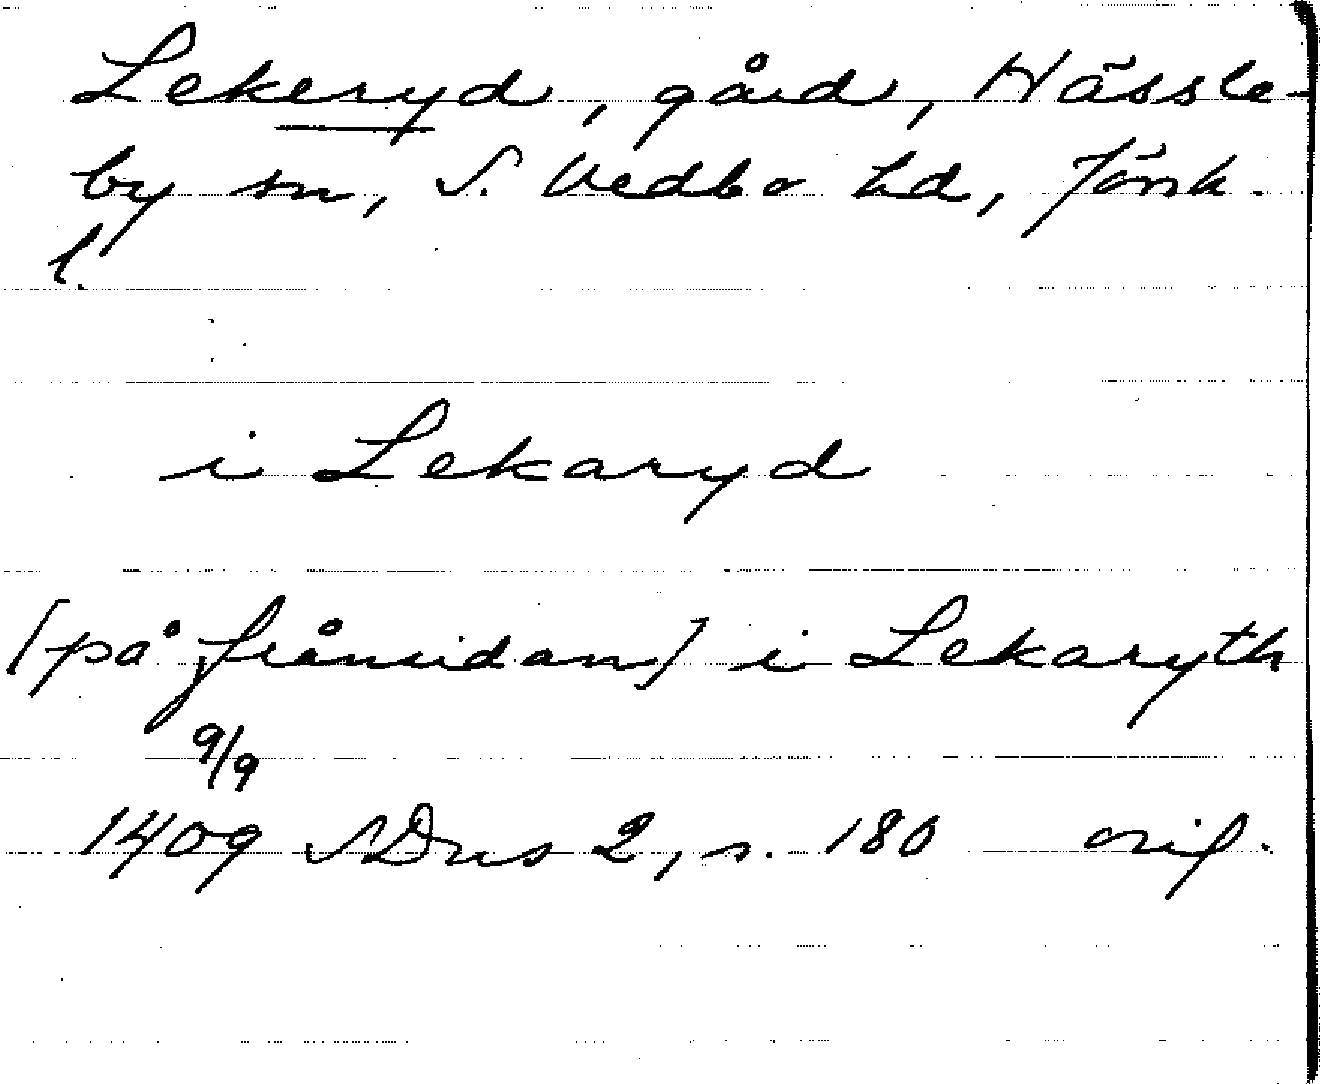 Lekeryd, gård, Hässle-
by sn, S. Vedbo hd, Jönk.
l.
i Lekaryd
[på frånsidan] i Lekaryth
9/9
1409 SDns 2, s. 180 orig.